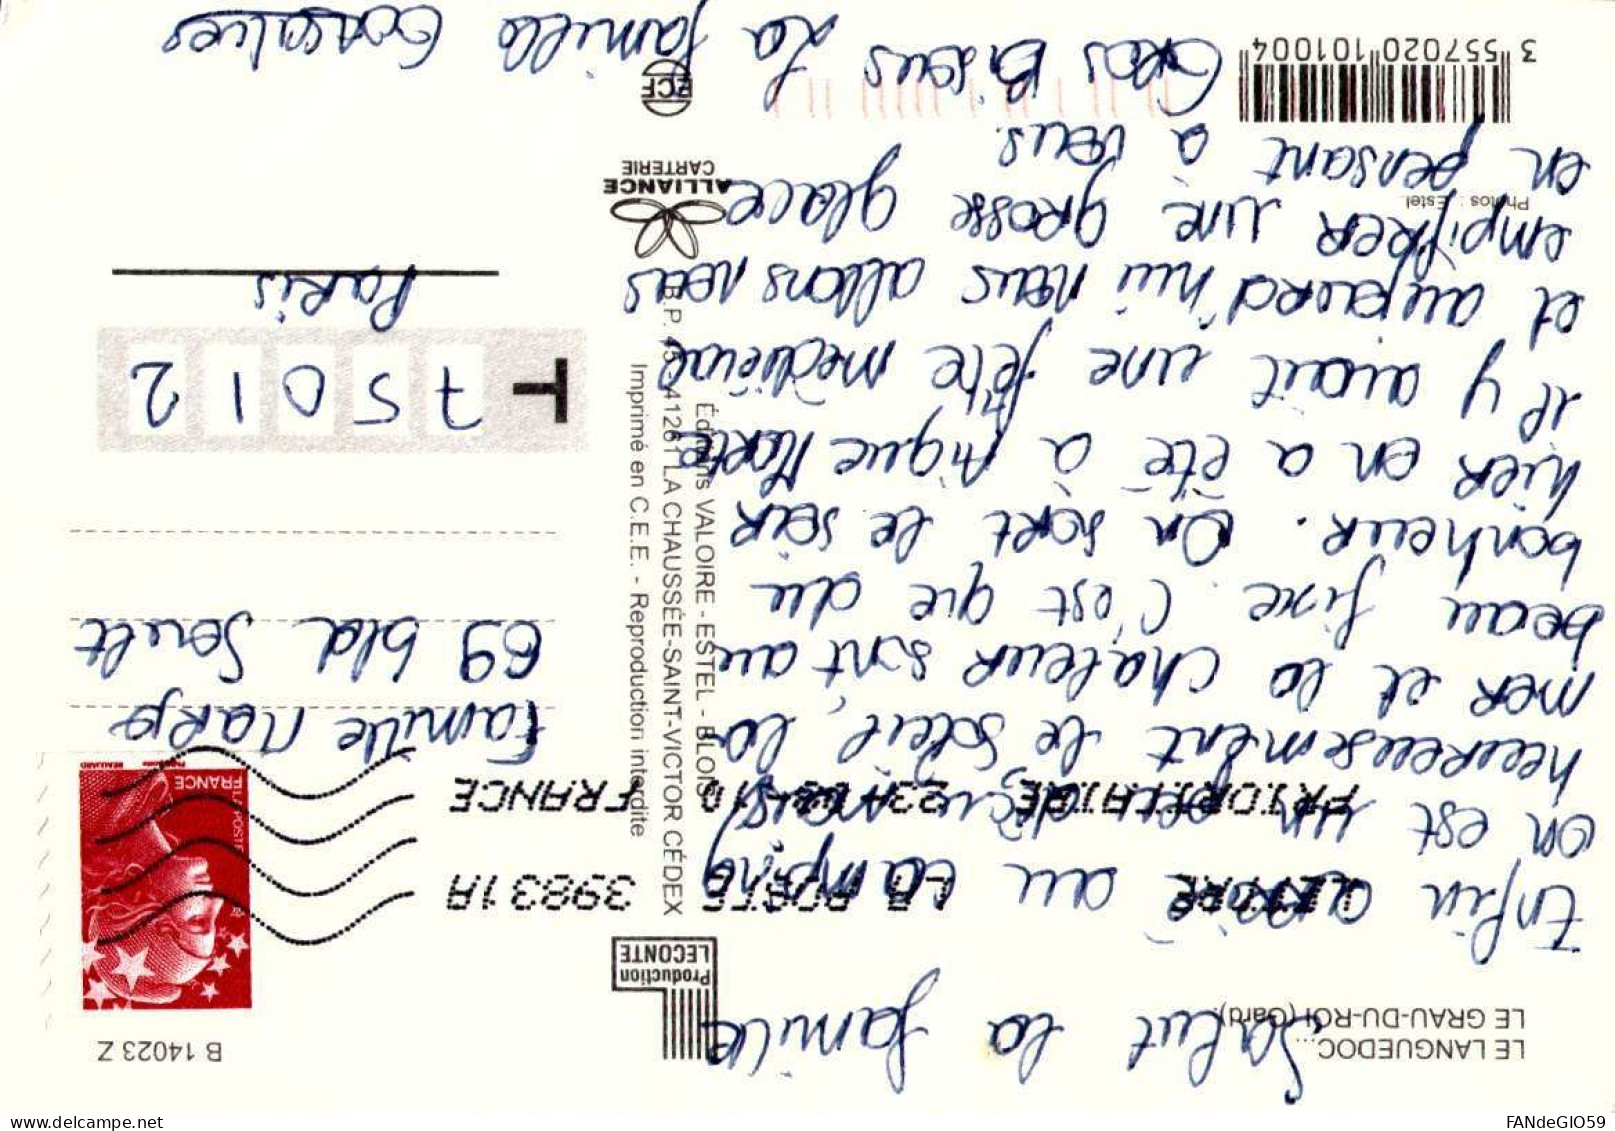 LE LANGUEDOC...
LE GRAU-DU-ROI (Gard).
Salut la famille
Enfin arrivé au camping
on est un peu déçu, mais
heureusement le soleil, la
mer et la chaleur sont au
beau fixe. C'est que du
bonheur. On sort le soir
hier on a été à Aigue Morte
il y avait une fête mediévale
et aujourd'hui nous allons nous
empifrer une grosse glace
en pensant à vous.
Gros Bisous La famille Gonsalves
Photos : Estel
3 557020 101004
Production
LECONTE
Éditions VALOIRE - ESTEL - BLOIS
B.P. 41261 LA CHAUSSÉE-SAINT-VICTOR CÉDEX
Imprimé en C.E.E. - Reproduction interdite
ALLIANCE
CARTERIE
ECF
B 14023 Z
LETTRE LA POSTE 39831A
PRIORITAIRE 23 10 FRANCE
LA POSTE
FRANCE
BEAUJARD
Famille Marp
69 bld Soult
75012
Paris
FANdeGIO59